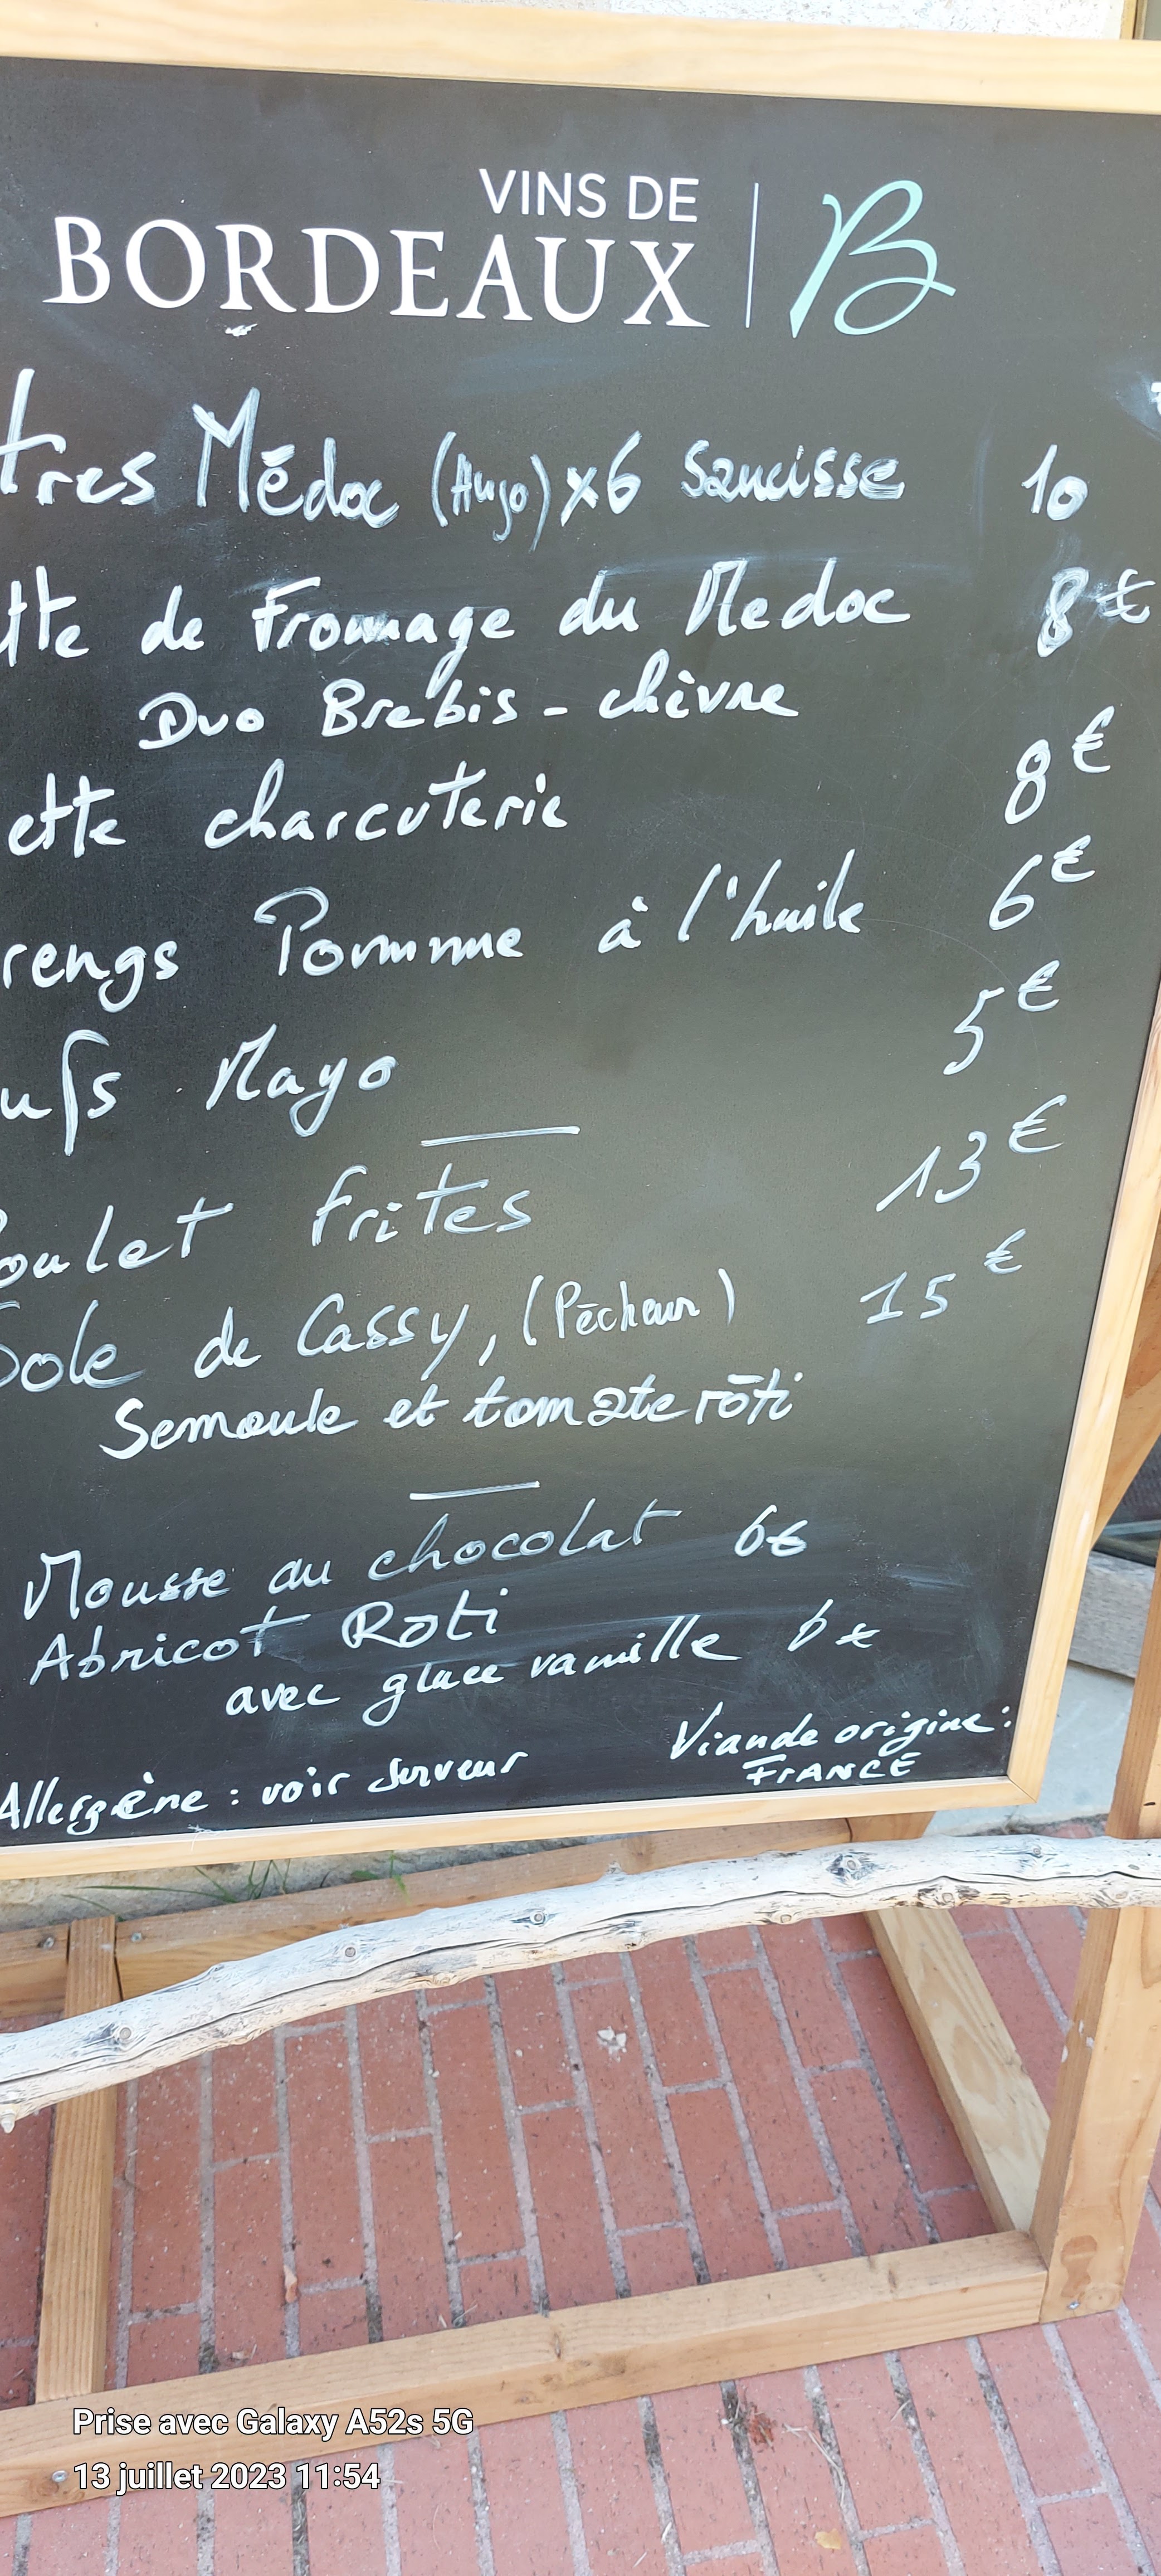 VINS DE
BORDEAUX B
tres Médoc (Augo) x6 Saucisse 10
tte de Fromage du Medoc 8€
Duo Brebis - chèvre
ette charcuterie 8€
rengs Pomme à l'huile 6€
ufs Mayo 5€
oulet frites 13€
Sole de Cassy, (Pêcheur) 15€
Semoule et tomate rôti
Mousse au chocolat 6€
Abricot Roti
avec glace vanille 6€
Viande origine :
FRANCE
Allergène : voir serveur
Prise avec Galaxy A52s 5G
13 juillet 2023 11:54